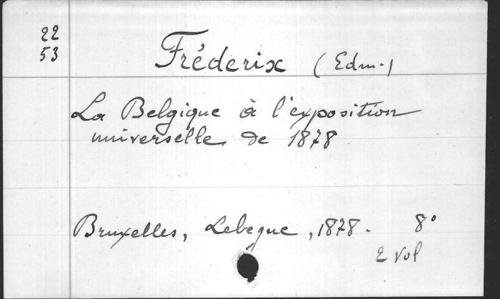 22
53
Fréderix (Edm.)
La Belgique à l'exposition
universelle de 1878
Bruxelles, Lebegue, 1878. 8°
2 vol